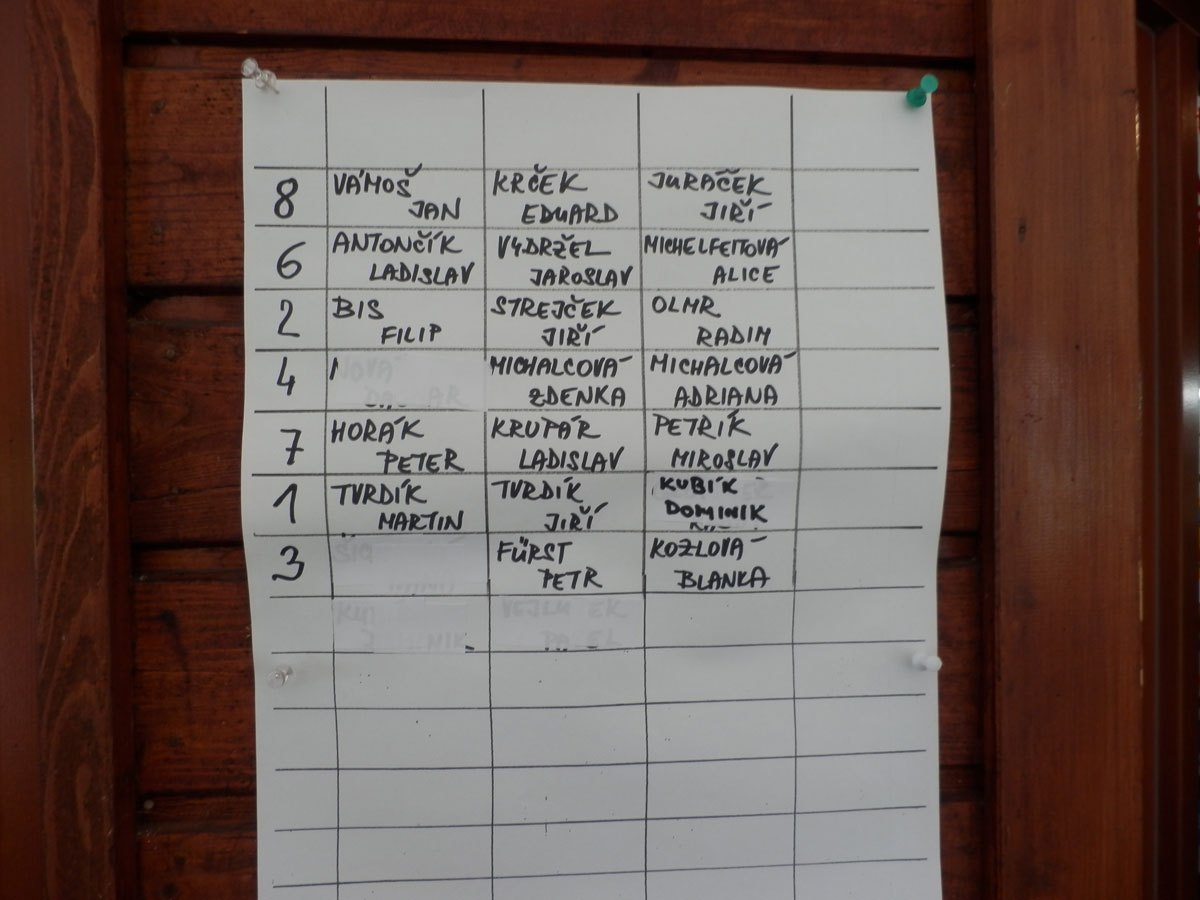 8 VÁMOŠ JAN KRČEK EDUARD JURAČEK JIŘÍ
6 ANTONČÍK LADISLAV VYDRŽEL JAROSLAV MICHELFEITOVÁ ALICE
2 BIS FILIP STREJČEK JIŘÍ OLMR RADIM
4 MICHALCOVÁ ZDENKA MICHALCOVÁ ADRIANA
7 HORÁK PETER KRUPÁR LADISLAV PETRÍK MIROSLAV
1 TVRDÍK MARTIN TVRDÍK JIŘÍ KUBÍK DOMINIK
3 FÜRST PETR KOZLOVÁ BLANKA